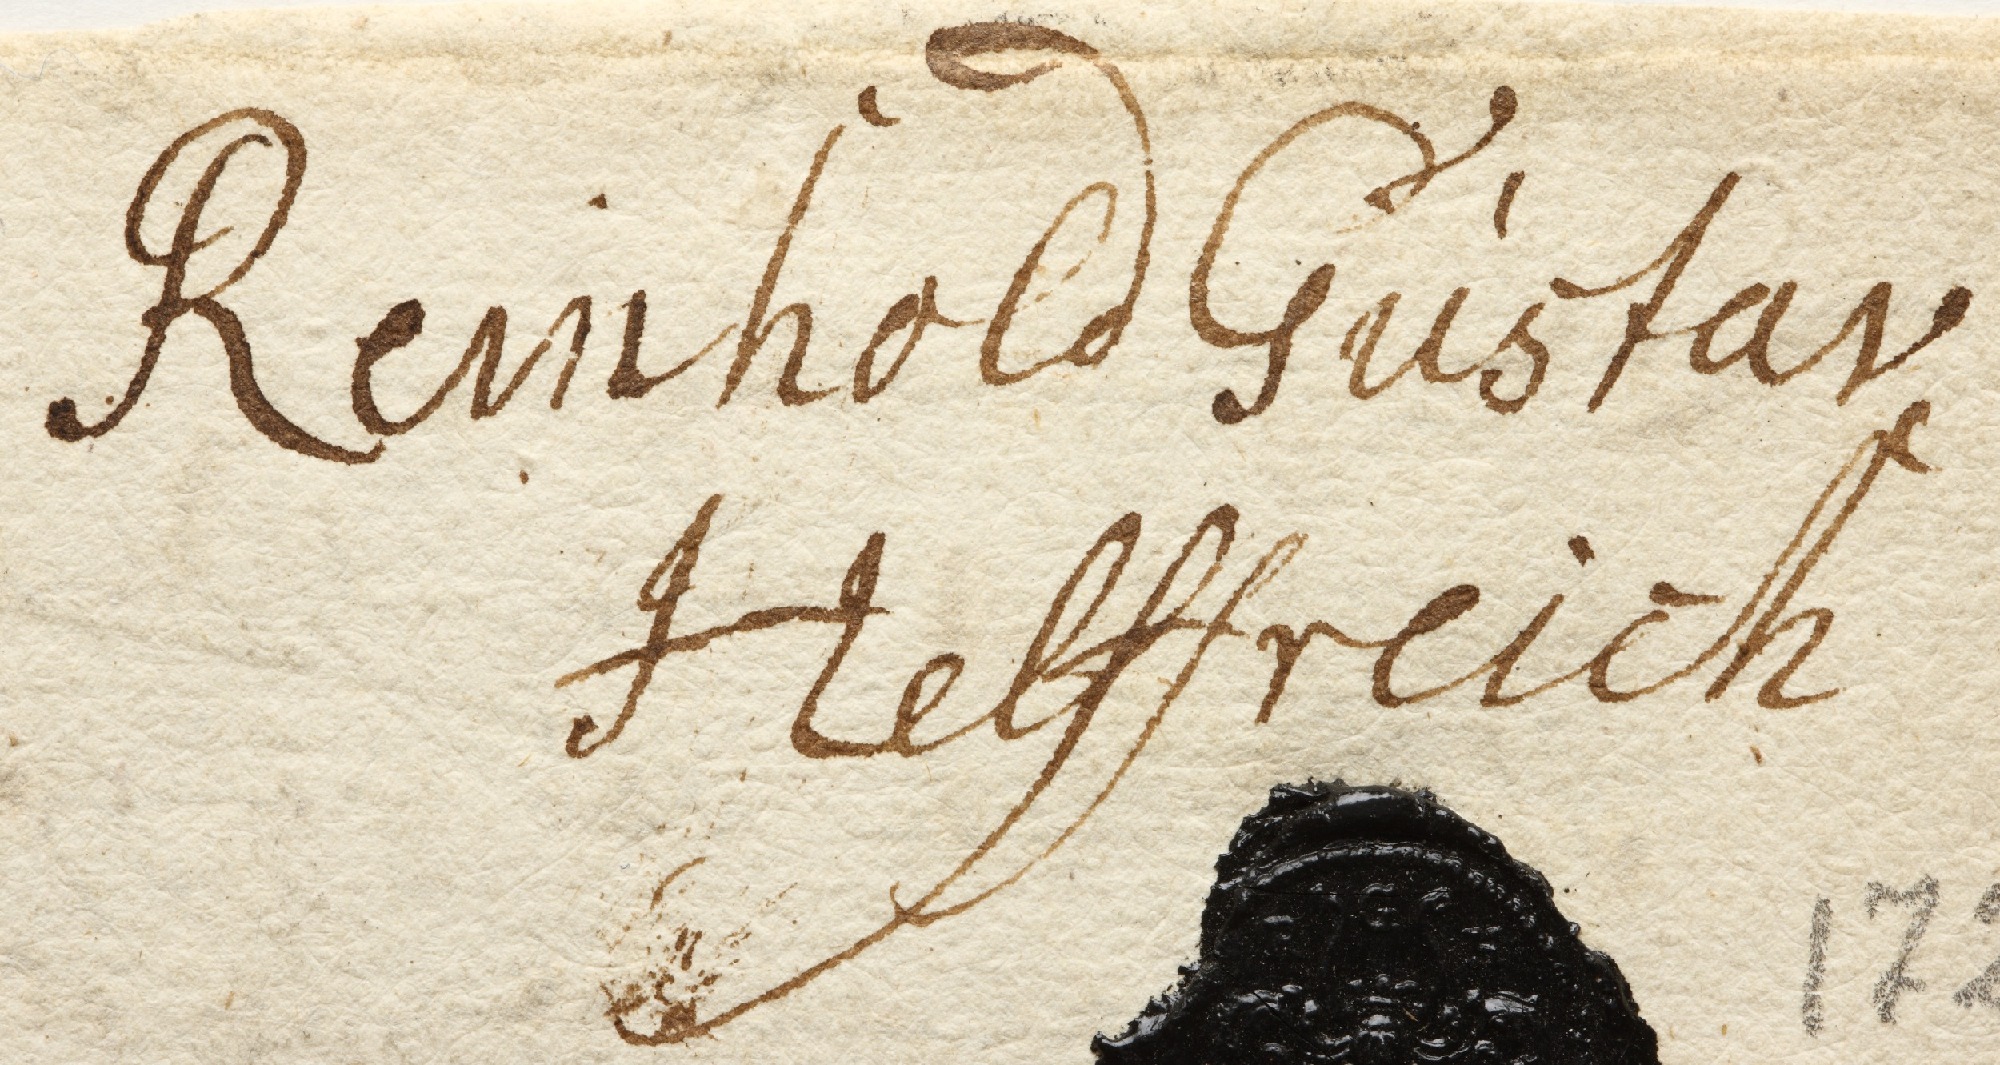 Reinhold Gustav
Helffreich
172